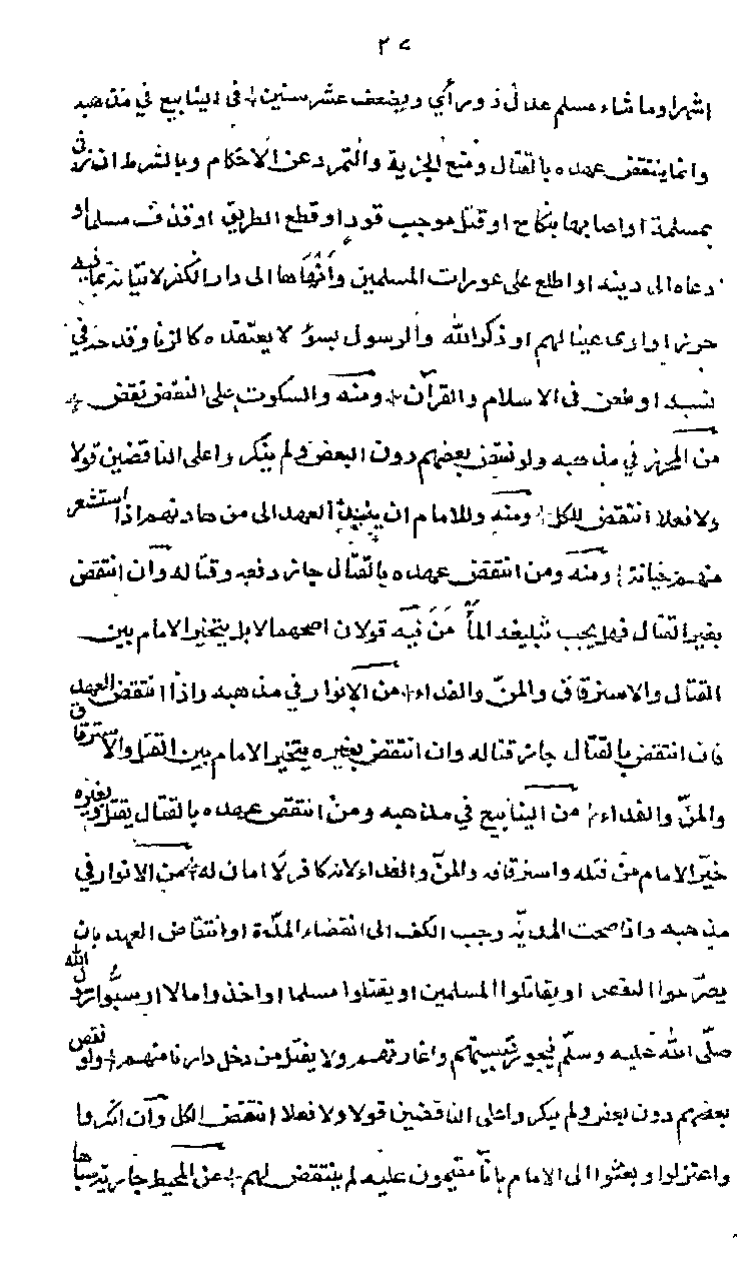 ٢٧
اشهرا وما شاء مسلم عدل ذو رأي ويضعف عشر سنين في الينابيع في مذهبه
وانما ينتقض عهده بالقتال ومنع الجزية والتمرد عن الاحكام وبالشرط ان زنى
بمسلمة او اصابها بنكاح او قتل موجب قود او قطع الطريق او قذف مسلما او
دعاه الى دينه او اطلع على عورات المسلمين وأنهاها الى دار الكفر لا
او اوى عينا لهم او ذكر الله والرسول بسوء لا يعتقده كالزنا وقدح في
نسبه او طعن في الاسلام والقرآن ومنه والسكوت على النقض نقض
من المحرر في مذهبه ولو نقض بعضهم دون البعض ولم ينكروا على الناقضين قولا
ولا فعلا انتقض للكل ومنه وللامام ان ينبذ العهد الى من هادنهم اذا استشعر
منهم خيانة ومنه ومن انتقض عهده بالقتال جاز دفعه وقتاله وان انتقض
بغير القتال فهل يجب تبليغه المأمن فيه قولان اصحهما لا بل يتخير الامام بين
القتال والاسترقاق والمن والفداء من الانوار في مذهبه واذا انتقض العهد
فان انتقض بالقتال جاز قتاله وان انتقض بغيره يتخير الامام بين القتل والاسترقاق
والمن والفداء من الينابيع في مذهبه ومن انتقض عهده بالقتال يقتل وبغيره
خير الامام من قتله واسترقاقه والمن والفداء لانه كافر لا امان له من الانوار في
مذهبه واذا صحت المدنة وجب الكف الى انقضاء المدة او انتقاض العهد بان
يصرحوا النقض او يقاتلوا المسلمين او يقتلوا مسلما او اخذوا مالا او سبوا رسول الله
صلى الله عليه وسلم فيجوز تبييتهم واغارتهم ولا يقتل من دخل دارنا منهم ولو نقض
بعضهم دون بعض ولم ينكروا على الناقضين قولا ولا فعلا انتقض الكل وان انكروا
واعتزلوا وبعثوا الى الامام بانا مقيمون عليه لم ينتقض لهم عن المحيط